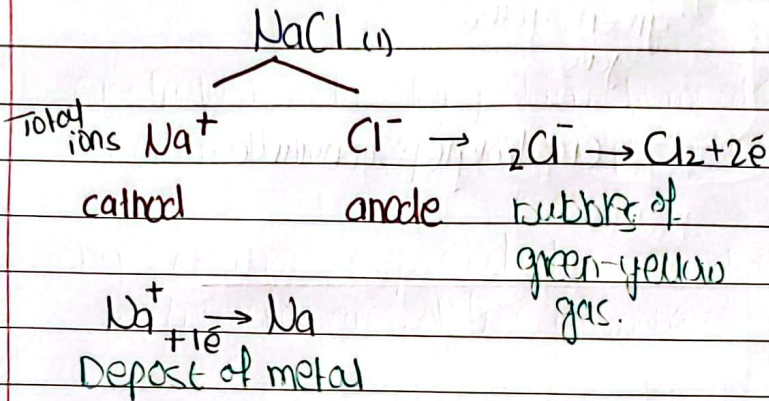 NaCl (l)
Total ions Na⁺ Cl⁻ → 2Cl⁻ → Cl2 + 2é
cathod anode bubble of
green-yellow
gas.
Na⁺ + 1é → Na
Depost of metal